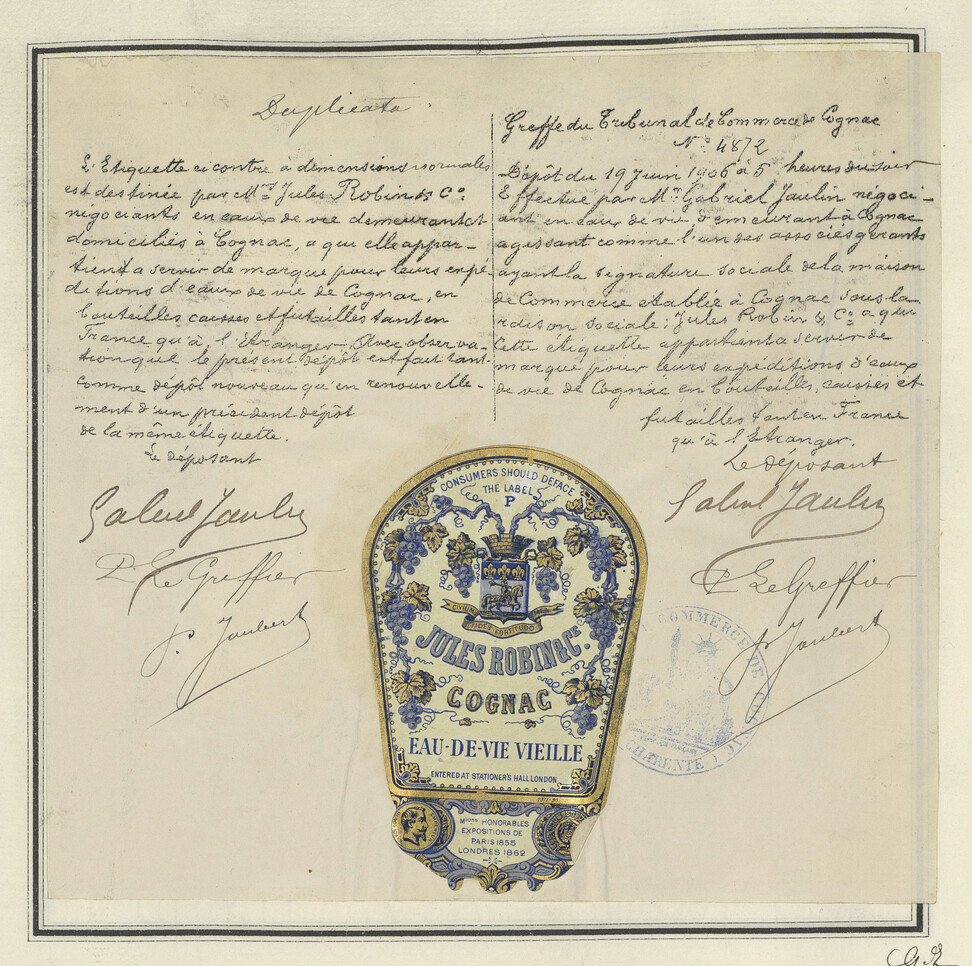 Duplicata
L'Etiquette ci contre à dimensions normales
est destinée par Mrs Jules Robin & Co
négociants en eaux de vie demeurant et
domiciliés à Cognac, a qui elle appar-
tient a servir de marque pour leurs expé-
ditions d'eaux de vie de Cognac, en
bouteilles caisses et futailles tant en
France qu'à, l'Etranger. Avec observa-
tion que le présent dépôt est fait tant
comme dépôt nouveau qu'en renouvelle-
ment d'un précédent dépôt
de la même étiquette.
Le déposant
Gabriel Jaulin
P. Le Greffier
P. Joubert
Greffe du Tribunal de Commerce de Cognac
No 4872
Dépôt du 19 Juin 1906 à 5 heures du soir
Effectué par Mr Gabriel Jaulin négoci-
ant en eaux de vie demeurant à Cognac
agissant comme l'un des associés gérants
ayant la signature sociale de la maison
de Commerce établie à Cognac sous la
raison sociale; Jules Robin & Co a qui
cette étiquette appartient a servir de
marque pour leurs expéditions d'eaux
de vie de Cognac en bouteilles, caisses et
futailles tant en France
qu'à l'Etranger.
Le déposant
Gabriel Jaulin
P. Le Greffier
P. Joubert
CONSUMERS SHOULD DEFACE
THE LABEL
P
FIDES FORTITUDO
JULES ROBIN & CE.
COGNAC
EAU-DE-VIE VIEILLE
ENTERED AT STATIONER'S HALL LONDON
Mions HONORABLES
EXPOSITIONS DE
PARIS 1855
LONDRES 1862
COMMERCE DE
CHARENTE